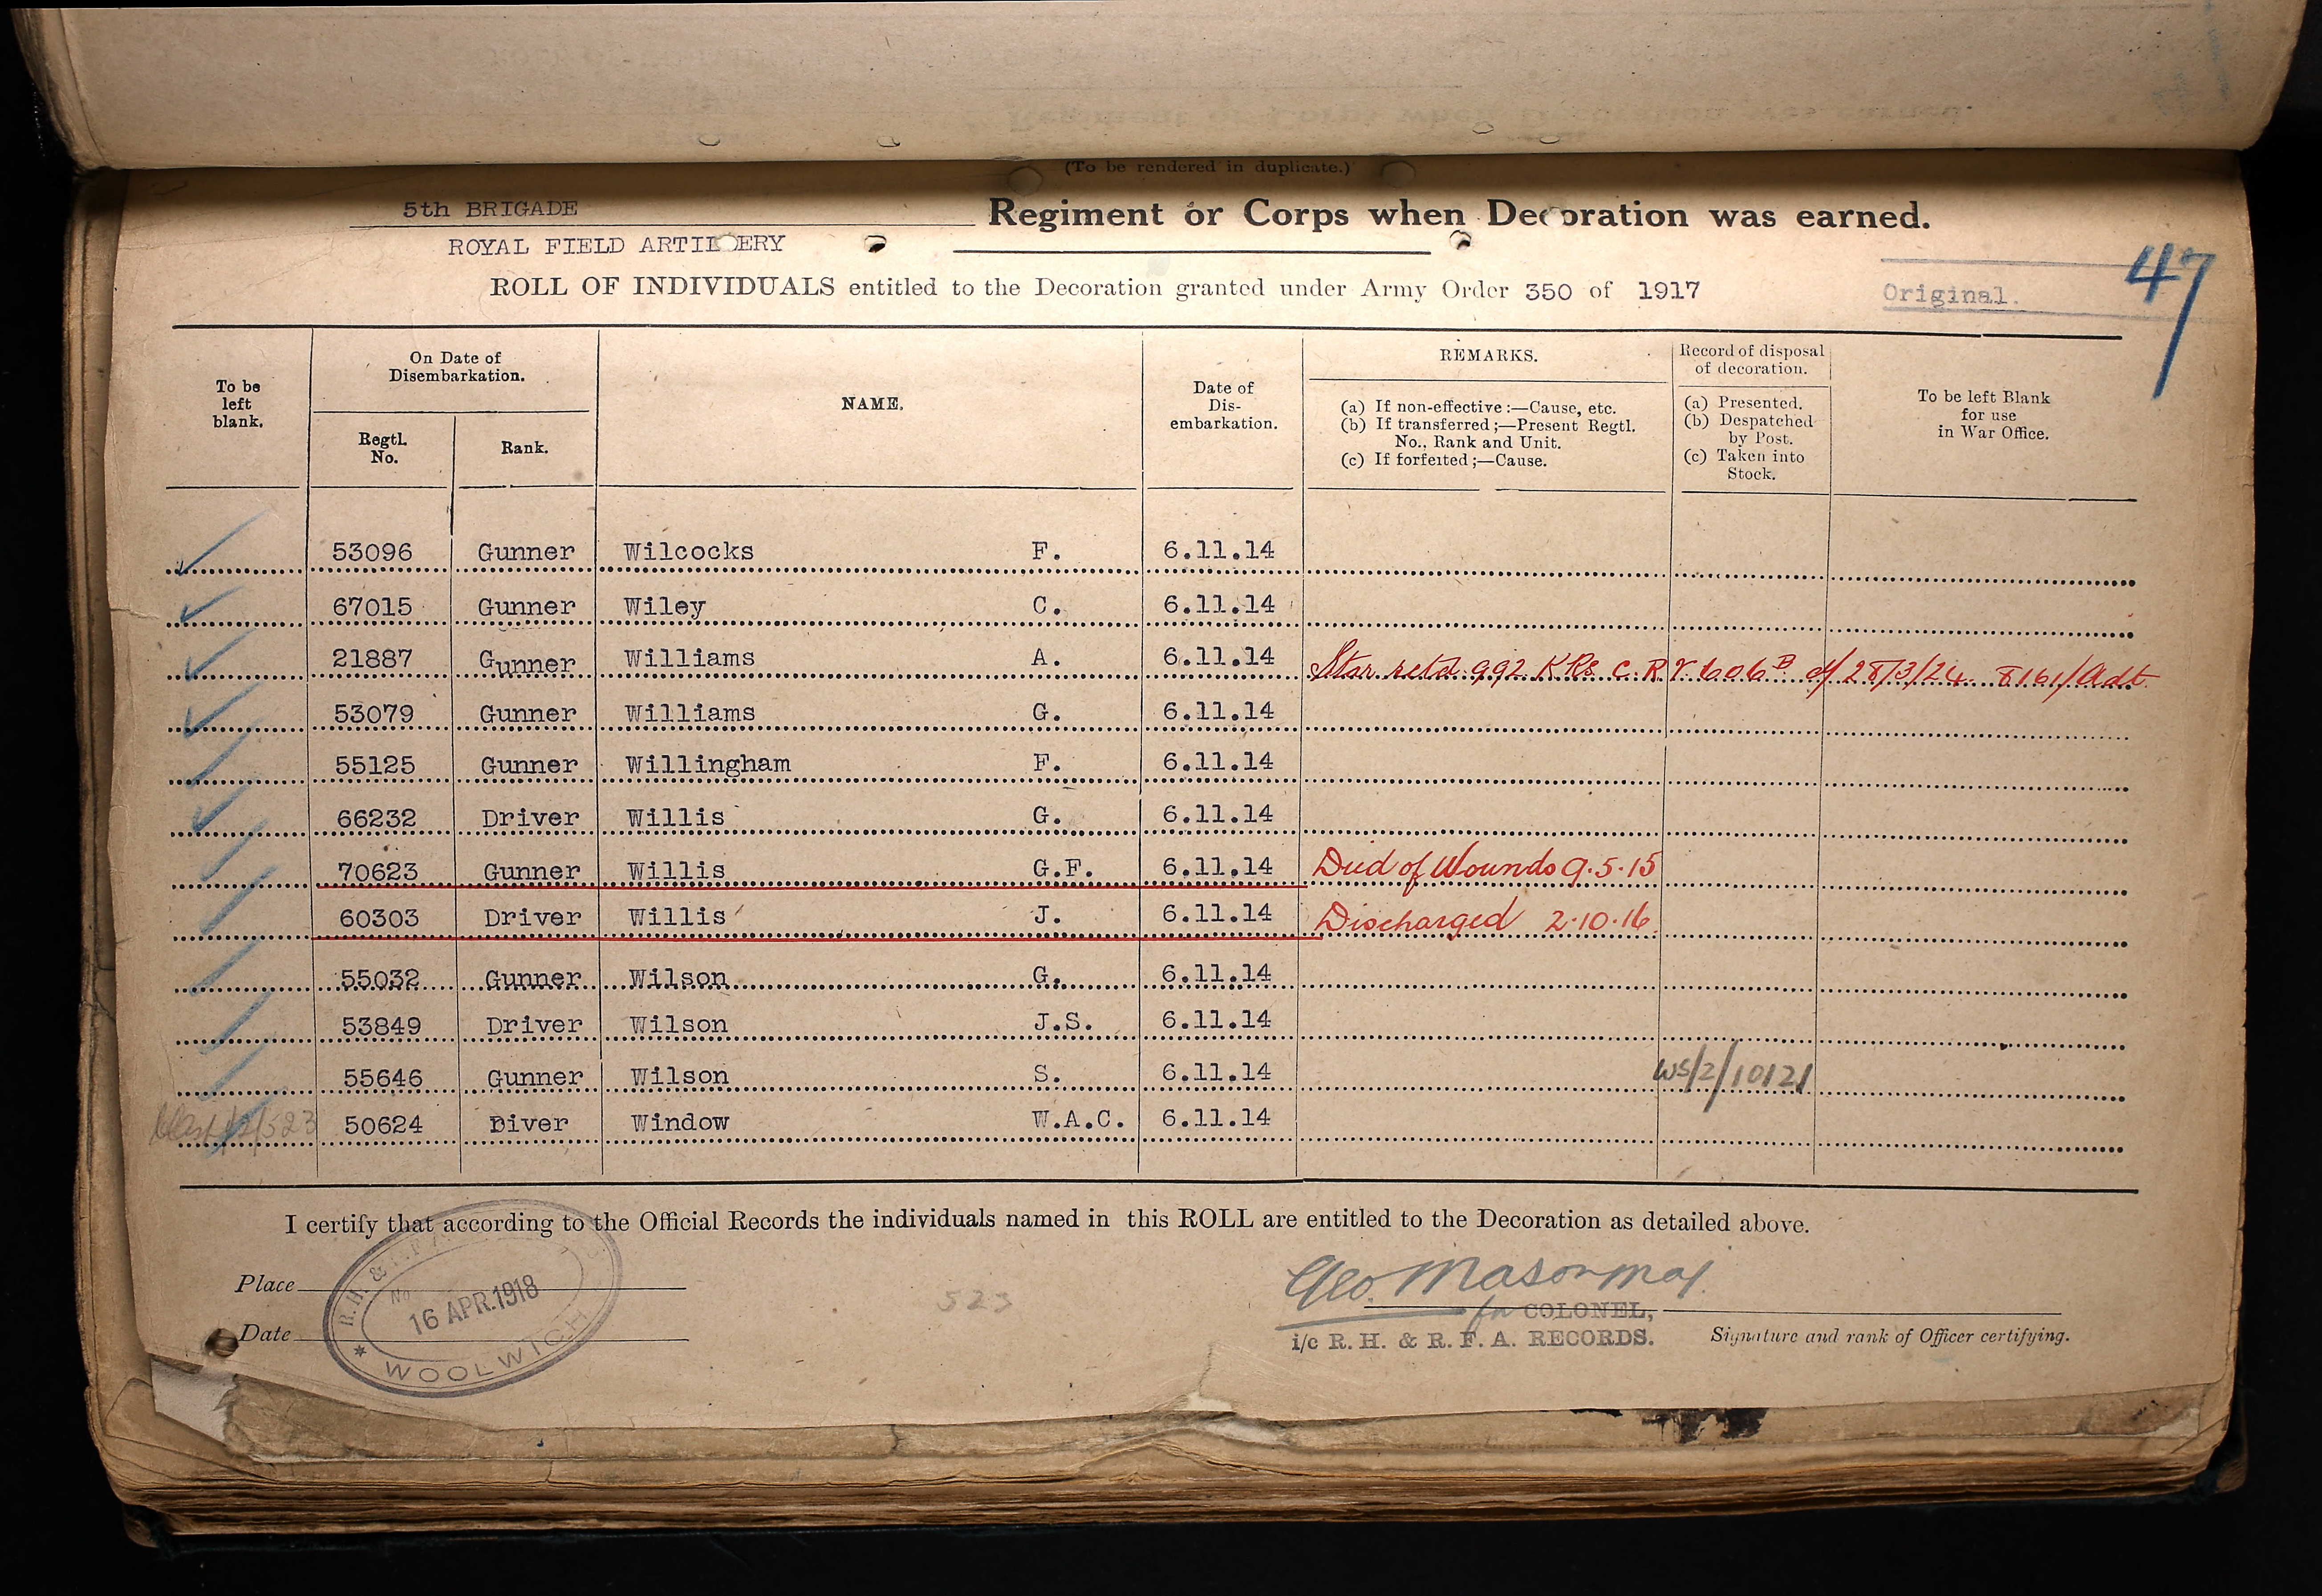 (To be rendered in duplicate.)
5th BRIGADE
Regiment or Corps when Decoration was earned.
ROYAL FIELD ARTILLERY
47
ROLL OF INDIVIDUALS entitled to the Decoration granted under Army Order 350 of 1917
Original.
To be left blank.
On Date of Disembarkation.
Regtl. No.
Rank.
NAME.
Date of Dis-embarkation.
REMARKS.
(a) If non-effective:—Cause, etc.
(b) If transferred;—Present Regtl. No., Rank and Unit.
(c) If forfeited;—Cause.
Record of disposal of decoration.
(a) Presented.
(b) Despatched by Post.
(c) Taken into Stock.
To be left Blank for use in War Office.
53096 Gunner Wilcocks F. 6.11.14
67015 Gunner Wiley C. 6.11.14
21887 Gunner Williams A. 6.11.14 Star retd. 992 KRs. C.R.V. 606B d/28/3/24. 8161/Adt.
53079 Gunner Williams G. 6.11.14
55125 Gunner Willingham F. 6.11.14
66232 Driver Willis G. 6.11.14
70623 Gunner Willis G.F. 6.11.14 Died of Wounds 9.5.15
60303 Driver Willis J. 6.11.14 Discharged 2.10.16.
55032 Gunner Wilson G. 6.11.14
53849 Driver Wilson J.S. 6.11.14
55646 Gunner Wilson S. 6.11.14 WS/2/10121
50624 Diver Window W.A.C. 6.11.14
I certify that according to the Official Records the individuals named in this ROLL are entitled to the Decoration as detailed above.
Place
Date
R.H. &
No
16 APR.1918
* WOOLWICH
523
Geo. Mason Maj.
for COLONEL,
i/c R. H. & R. F. A. RECORDS.
Signature and rank of Officer certifying.